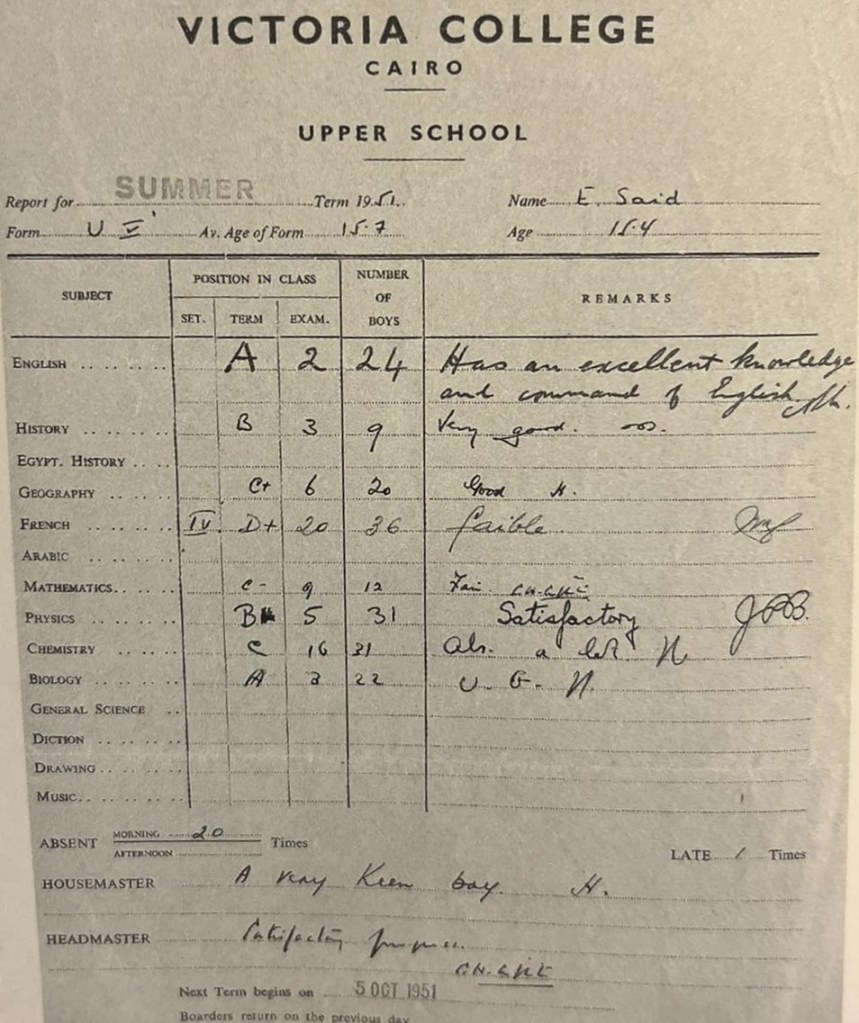 VICTORIA COLLEGE
CAIRO
UPPER SCHOOL
Report for SUMMER Term 1951. Name E. Said
Form U V Av. Age of Form 15.7 Age 15.4
SUBJECT POSITION IN CLASS NUMBER OF BOYS REMARKS
SET. TERM EXAM.
ENGLISH A 2 24 Has an excellent knowledge
and command of English.
HISTORY B 3 9 Very good.
EGYPT. HISTORY
GEOGRAPHY C+ 6 20 Good H.
FRENCH IV. D+ 20 36 faible.
ARABIC
MATHEMATICS C- 9 12 Fair
PHYSICS B 5 31 Satisfactory JPB.
CHEMISTRY C 16 31 Abs. a lot. N
BIOLOGY A 3 22 V. G. N.
GENERAL SCIENCE
DICTION
DRAWING
MUSIC
ABSENT MORNING 20 Times
AFTERNOON
LATE 1 Times
HOUSEMASTER A very Keen boy. H.
HEADMASTER Satisfactory progress.
Next Term begins on 5 OCT 1951
Boarders return on the previous day